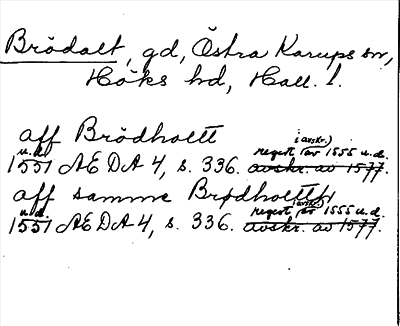 Brödalt, gd, Östra Karups sn,
Höks hd, Hall. l.
aff Brödholtt
u.d. 1551 AEDA 4, s. 336. regest (i avskr.) av 1555 u.d. avskr. av 1577.
aff samme Brødholtt
u.d. 1551 AEDA 4, s. 336. regest (i avskr.) av 1555 u.d. avskr. av 1577.